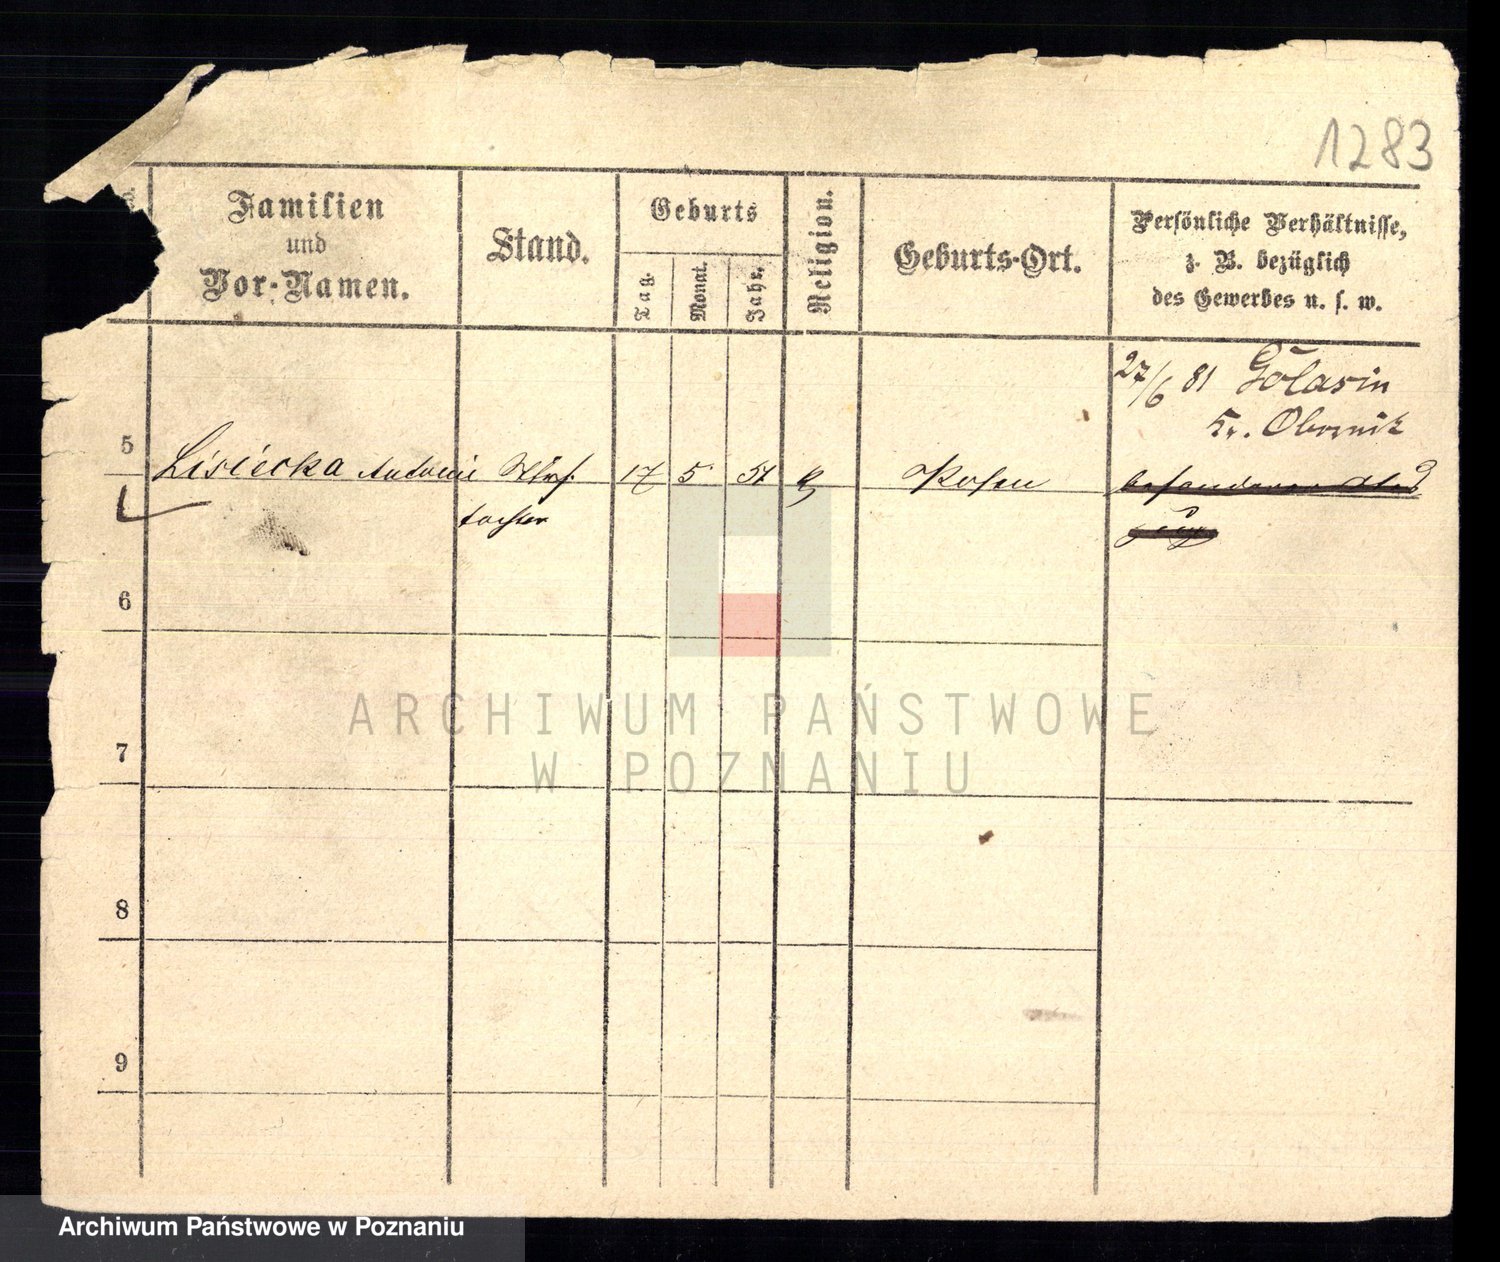 1283
Familien
und
Vor-Namen.
Stand.
Geburts
Tag.
Monat.
Jahr.
Religion.
Geburts-Ort.
Persönliche Verhältnisse,
z. B. bezüglich
des Gewerbes u. s. w.
27/6 81 Golasin
Kr. Obornik
5
Lisiecka Antonie
tochter
17 5 51
Posen
6
7
8
9
ARCHIWUM PAŃSTWOWE
W POZNANIU
Archiwum Państwowe w Poznaniu